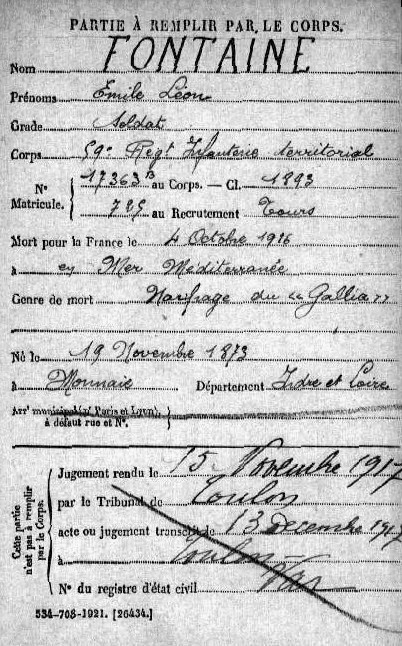 PARTIE À REMPLIR PAR LE CORPS.
Nom FONTAINE
Prénoms Emile Léon
Grade Soldat
Corps 59e Regt Infanterie territorial
N° Matricule. { 17363B au Corps. — Cl. 1893
785 au Recrutement Tours
Mort pour la France le 4 Octobre 1916
à en Mer Méditerranée
Genre de mort Naufrage du "Gallia"
Né le 19 Novembre 1873
à Monnaie Département Indre et Loire
Arrt municipal (pr Paris et Lyon),
à défaut rue et N°.
Cette partie
n'est pas à remplir
par le Corps.
Jugement rendu le 15 Novembre 1917
par le Tribunal de Toulon
acte ou jugement transcrit le 13 decembre 1917
à Toulon Var
N° du registre d'état civil
534-708-1921. [26434.]